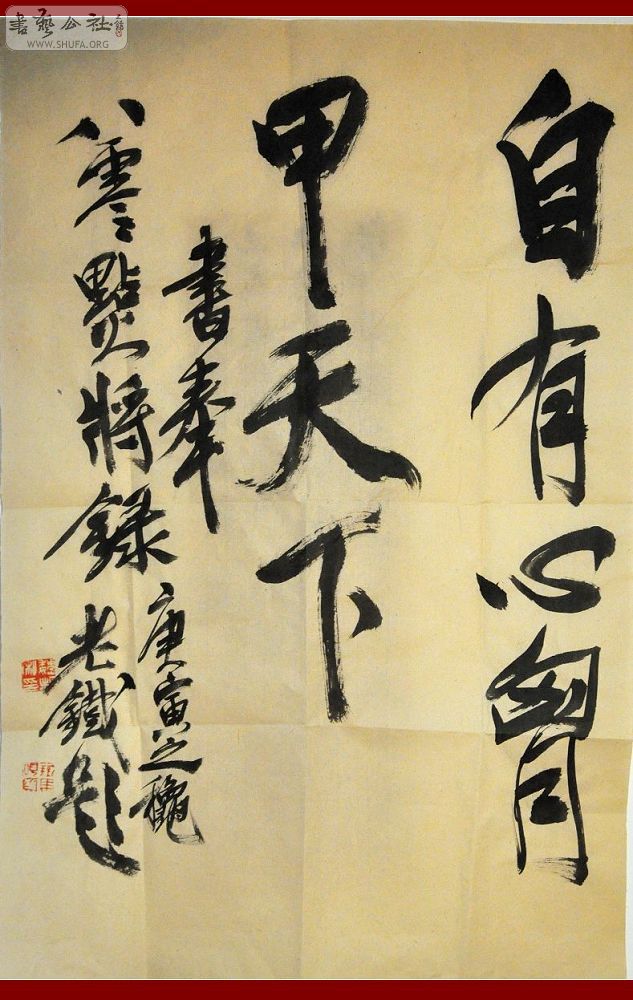 書藝公社
WWW.SHUFA.ORG
自有心胷
甲天下
書奉
八零點將録
庚寅之穐
老鐵題